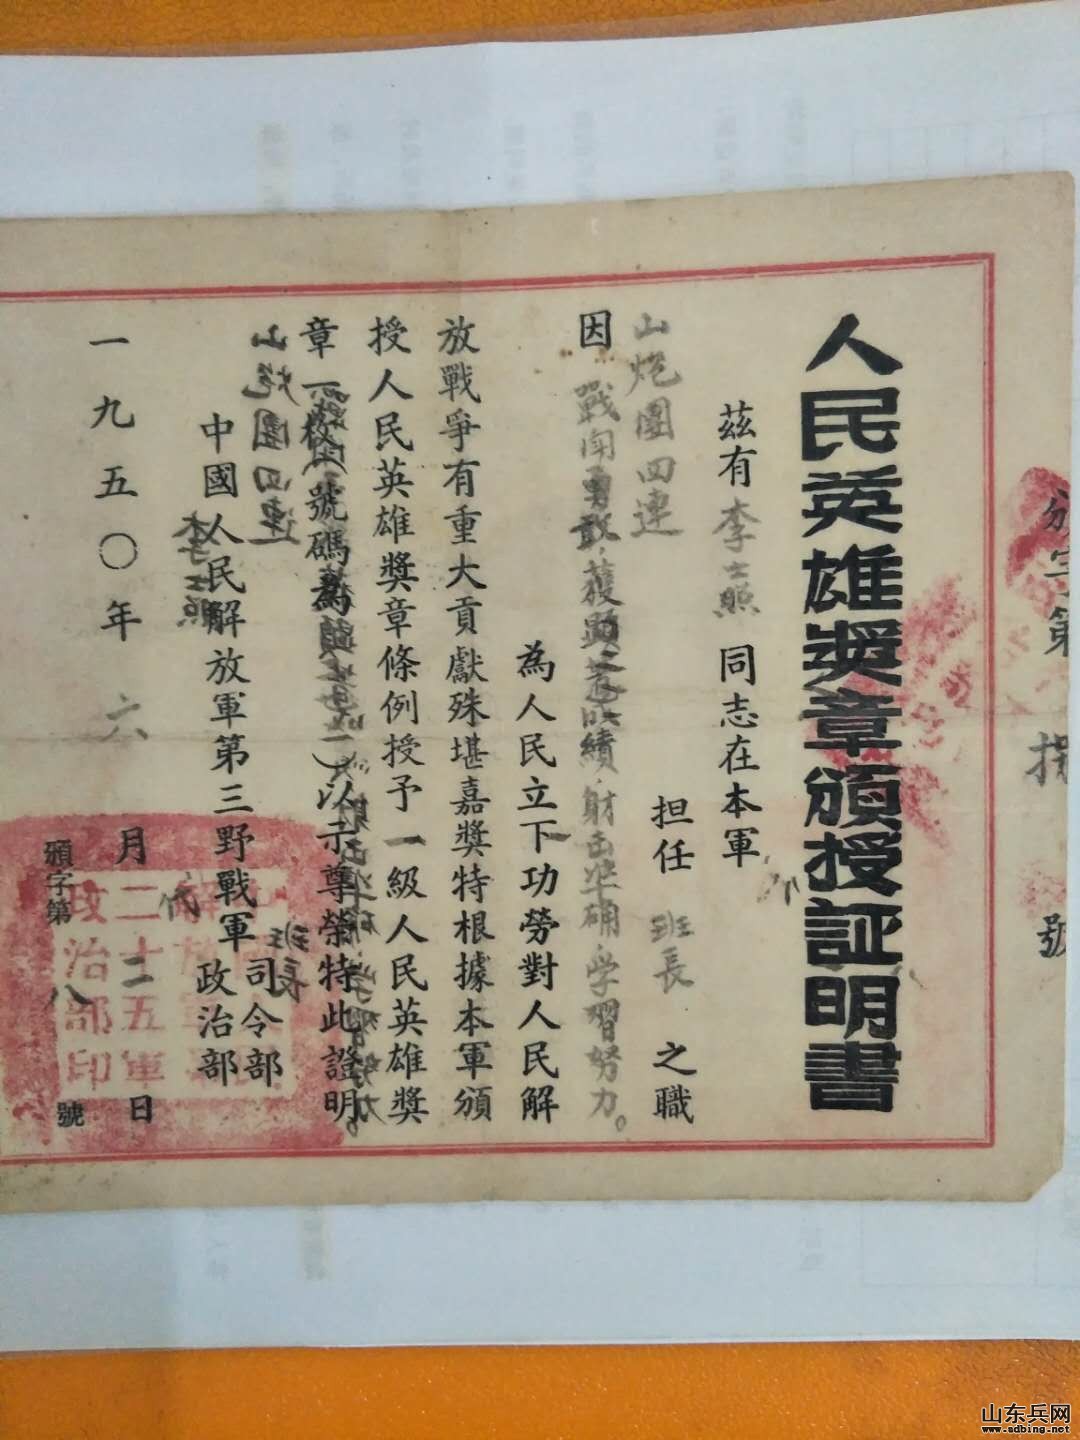 頒字第
號
人民英雄獎章頒授証明書
茲有李士照同志在本軍
山炮團四連担任班長之職
因戰鬥勇敢，獲顯著功績，射击准确，学習努力。
為人民立下功勞對人民解
放戰爭有重大貢獻殊堪嘉獎特根據本軍頒
授人民英雄獎章條例授予一級人民英雄獎
章一枚（號碼為）以示尊榮特此證明
中國人民解放軍第三野戰軍司令部
政治部
一九五〇年六月二日
頒字第八號
解放軍
二十五軍
政治部印
山东兵网
www.sdbing.net